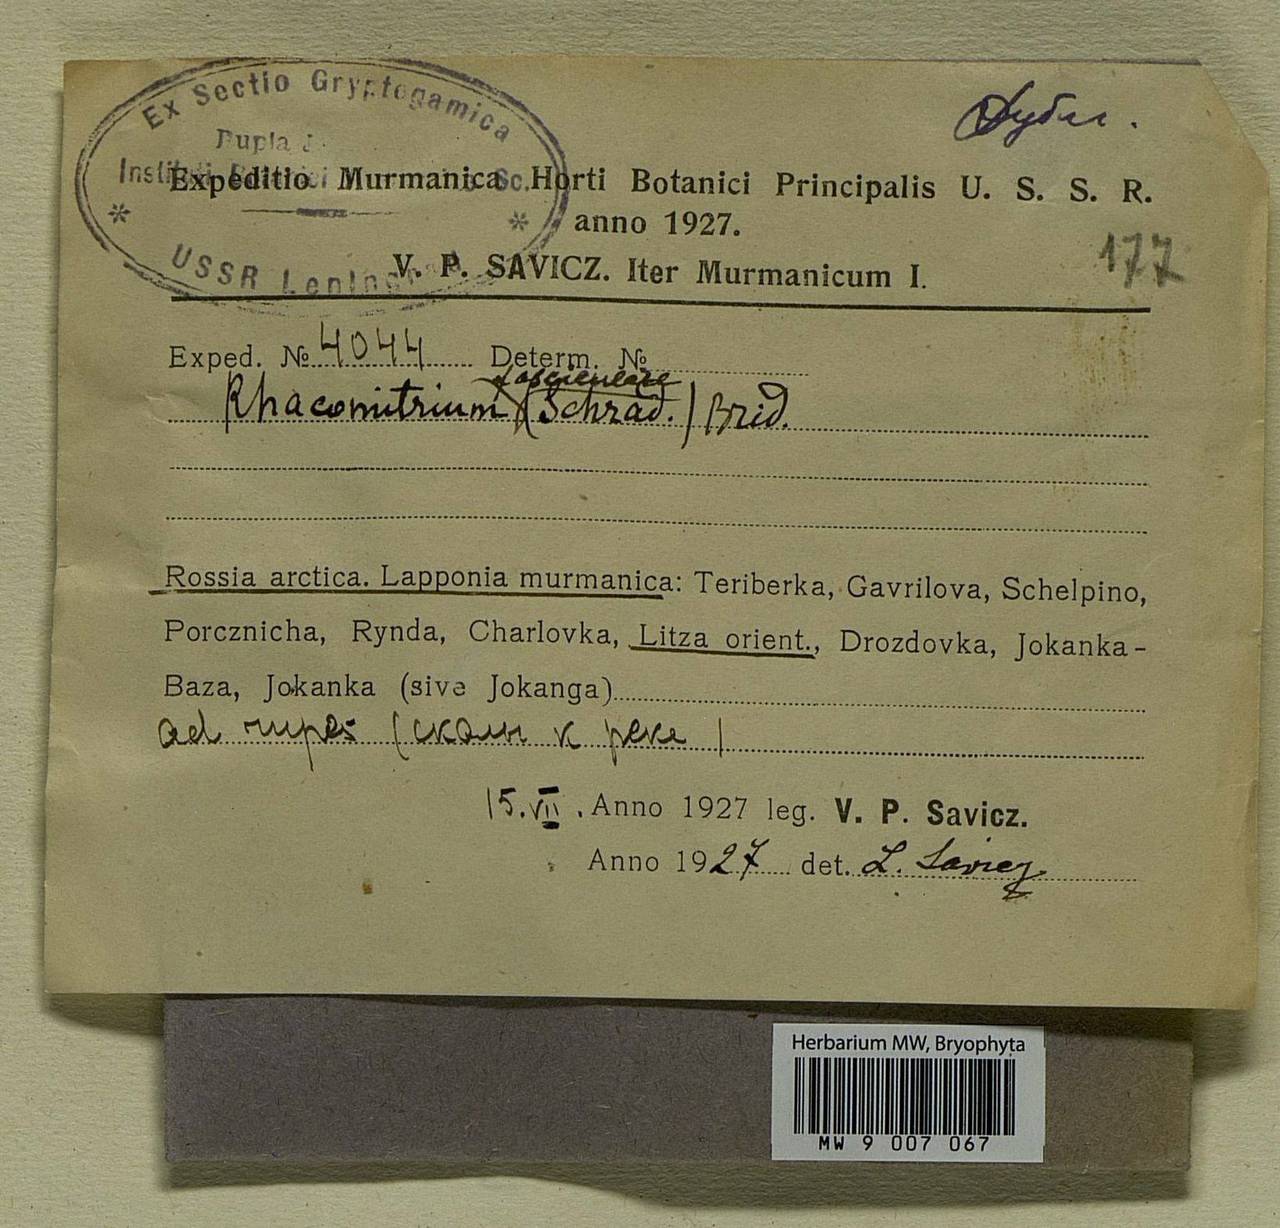 Ex Sectio Gryptogamica
Дубл.
Dupla
Instituti
Sc.
Expeditio Murmanica Horti Botanici Principalis U. S. S. R.
anno 1927.
177
USSR Leningrad
V. P. SAVICZ. Iter Murmanicum I.
Exped. № 4044 Determ. №
fasciculare
Rhacomitrium (Schrad.) Brid.
Rossia arctica. Lapponia murmanica: Teriberka, Gavrilova, Schelpino,
Porcznicha, Rynda, Charlovka, Litza orient., Drozdovka, Jokanka-
Baza, Jokanka (sive Jokanga)
ad rupes (скалы к реке)
15.VII. Anno 1927 leg. V. P. Savicz.
Anno 1927 det. L. Savicz
Herbarium MW, Bryophyta
MW 9 007 067